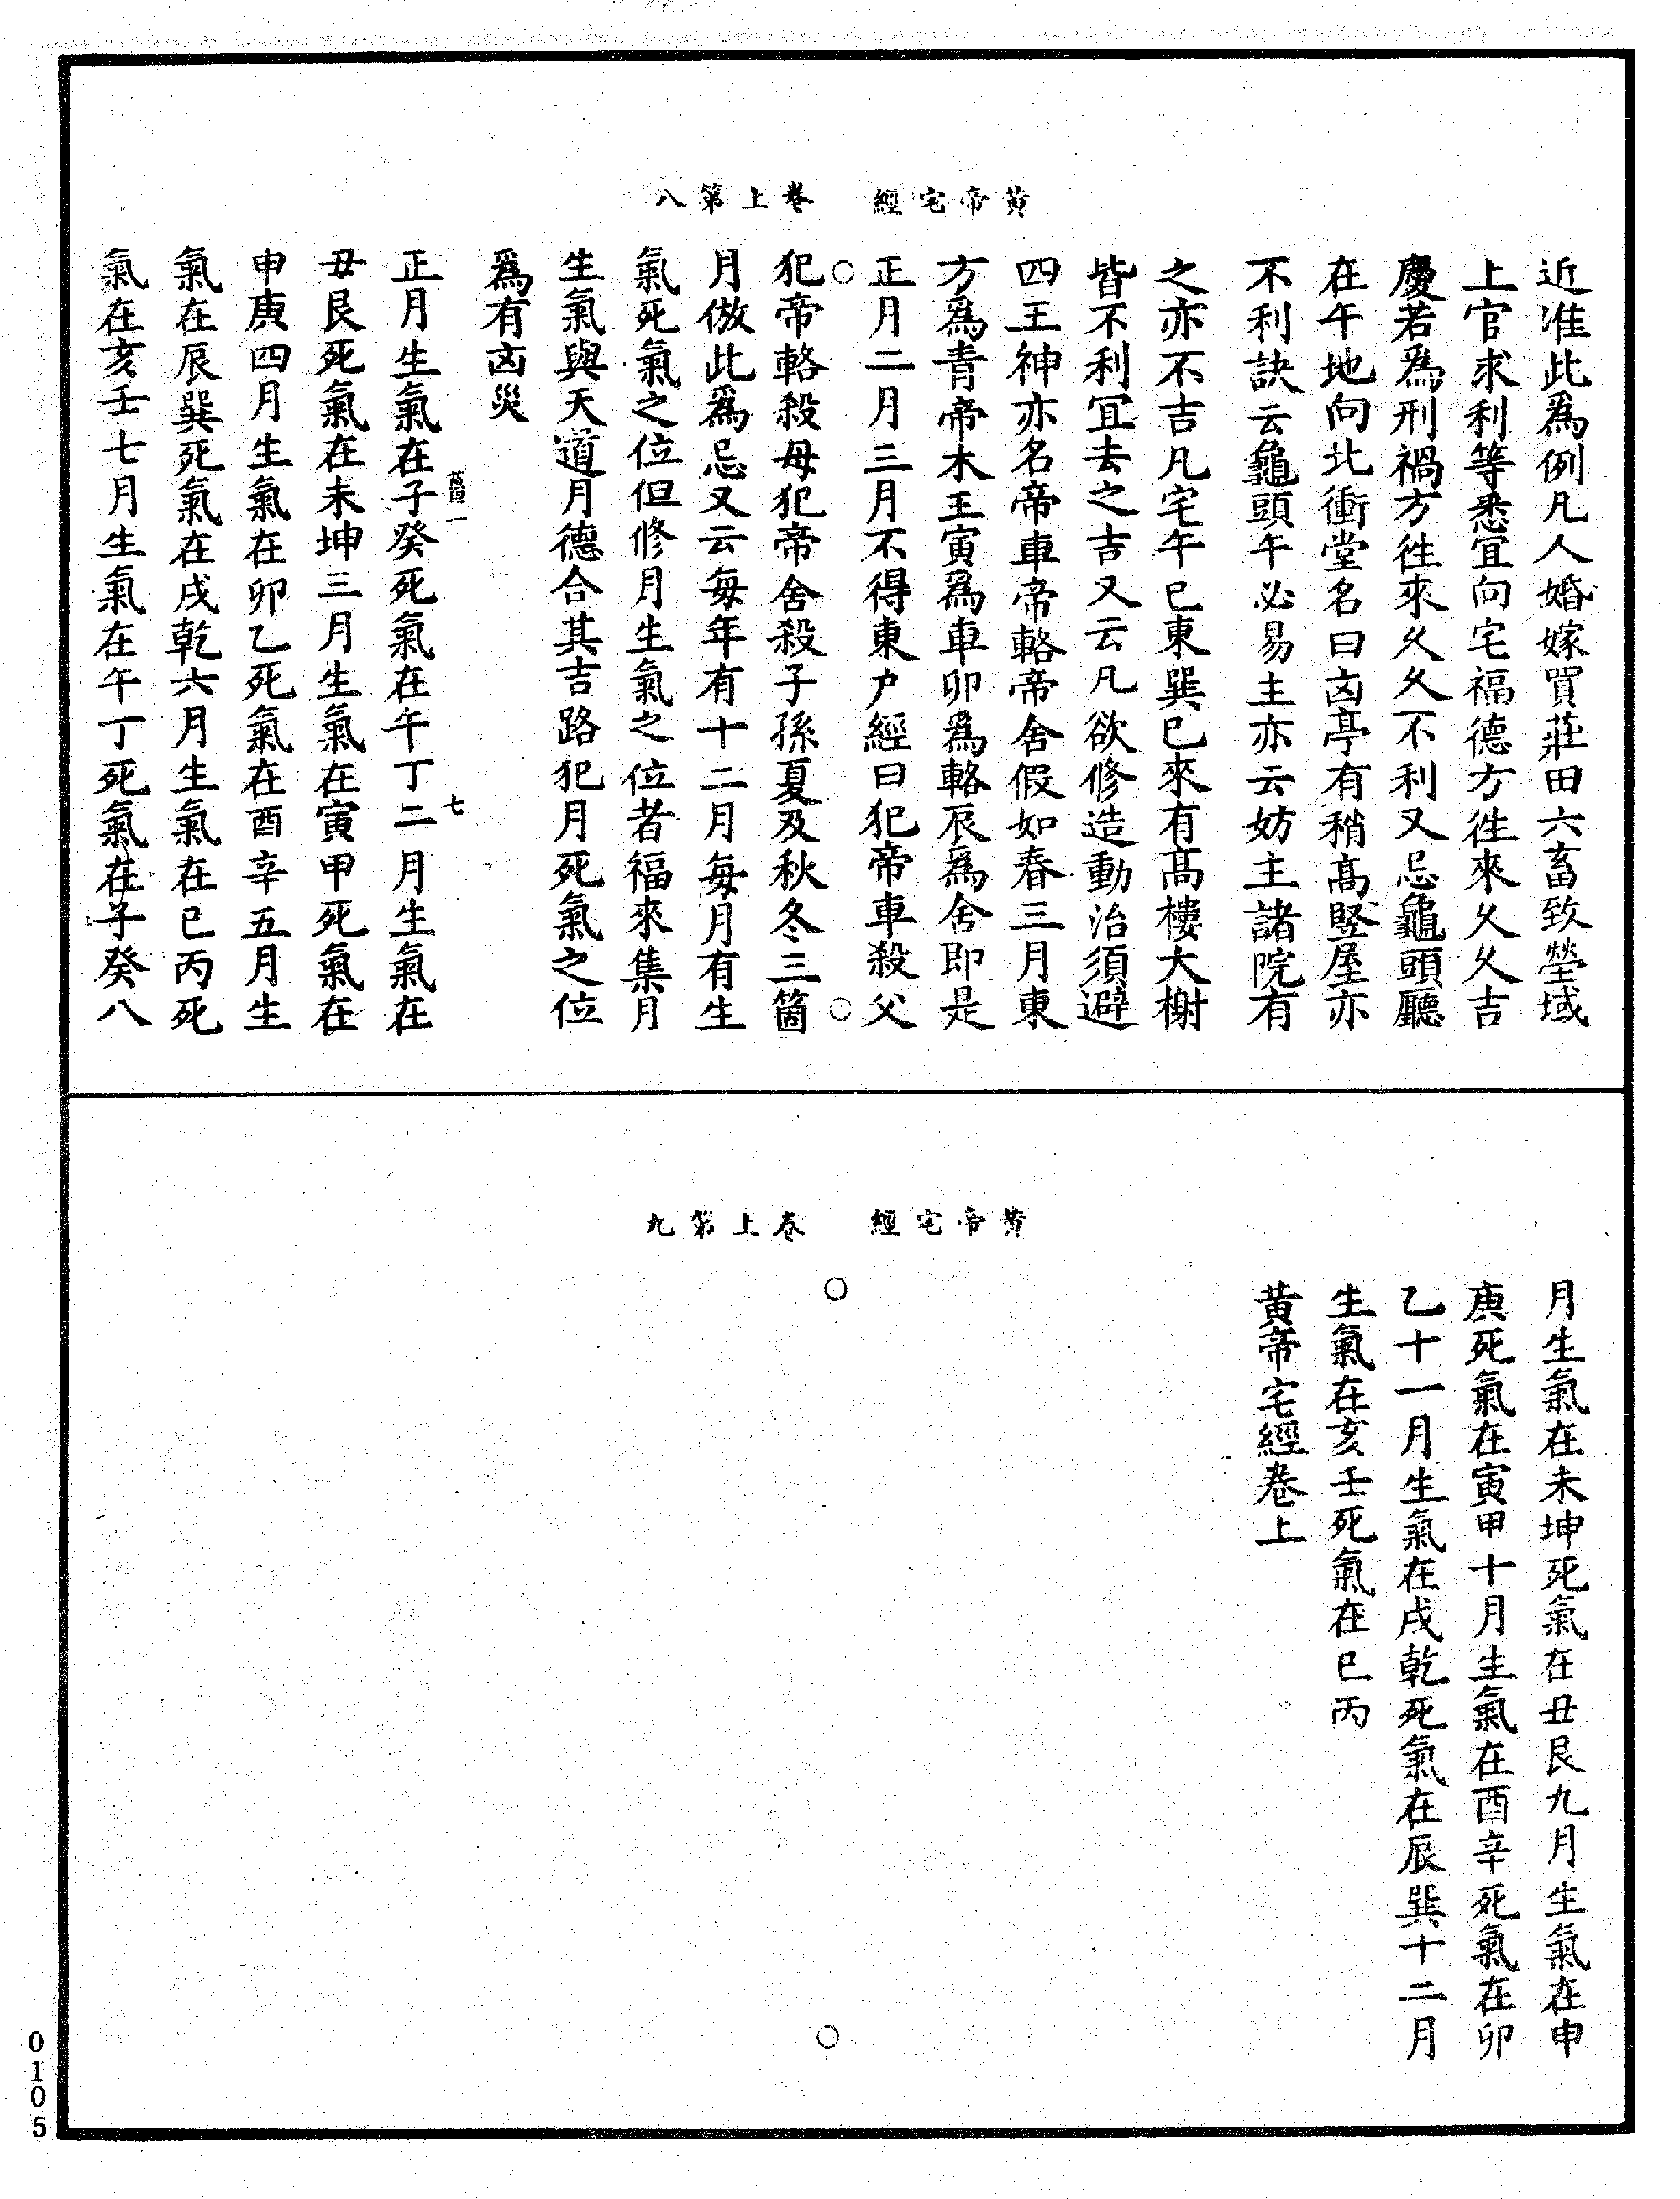 黃帝宅經　卷上第八
近准此爲例凡人婚嫁買莊田六畜致塋域
上官求利等悉宜向宅福德方徃來久久吉
慶若爲刑禍方徃來久久不利又忌龜頭廳
在午地向北衝堂名曰凶亭有稍髙竪屋亦
不利訣云龜頭午必易主亦云妨主諸院有
之亦不吉凡宅午巳東巽巳來有髙樓大榭
皆不利宜去之吉又云凡欲修造動治須避
四王神亦名帝車帝輅帝舍假如春三月東
方爲青帝木王寅爲車卯爲輅辰爲舍即是
正月二月三月不得東户經曰犯帝車殺父
犯帝輅殺母犯帝舍殺子孫夏及秋冬三箇
月倣此爲忌又云每年有十二月每月有生
氣死氣之位但修月生氣之位者福來集月
生氣與天道月德合其吉路犯月死氣之位
爲有凶災
一
七
正月生氣在子癸死氣在午丁二月生氣在
丑艮死氣在未坤三月生氣在寅甲死氣在
申庚四月生氣在卯乙死氣在酉辛五月生
氣在辰巽死氣在戌乾六月生氣在巳丙死
氣在亥壬七月生氣在午丁死氣在子癸八
黃帝宅經　卷上第九
月生氣在未坤死氣在丑艮九月生氣在申
庚死氣在寅甲十月生氣在酉辛死氣在卯
乙十一月生氣在戌乾死氣在辰巽十二月
生氣在亥壬死氣在巳丙
黃帝宅經卷上
0105